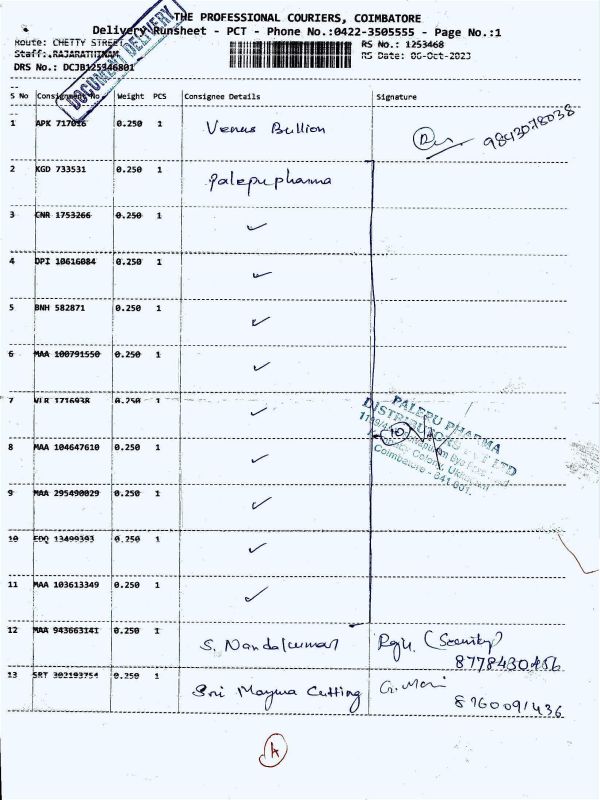 THE PROFESSIONAL COURIERS, COIMBATORE
Delivery Runsheet - PCT - Phone No.:0422-3505555 - Page No.:1
Route: CHETTY STREET RS No.: 1253468
Staff: RAJARATHINAM RS Date: 06-Oct-2023
DRS No.: DCJB125346801
DOCUMENT DELIVERY
S No Consignment No Weight PCS Consignee Details Signature
1 APK 717016 0.250 1 Venus Bullion 9843078038
2 KGD 733531 0.250 1 palepu pharma
3 CNR 1753266 0.250 1 ✓
4 DPI 10616084 0.250 1 ✓
5 BNH 582871 0.250 1 ✓
6 MAA 100791550 0.250 1 ✓
7 VLR 1716938 0.250 1 ✓
PALEPU PHARMA
DISTRIBUTORS PVT LTD
Coimbatore - 641 001.
8 MAA 104647610 0.250 1 ✓
10
9 MAA 295490029 0.250 1 ✓
10 EDQ 13499393 0.250 1 ✓
11 MAA 103613349 0.250 1 ✓
12 MAA 943663141 0.250 1 S. Nandakumar (Security)
8778430456
13 SRT 302193754 0.250 1 Sri Mayura Cutting G. Mani
8760091436
A